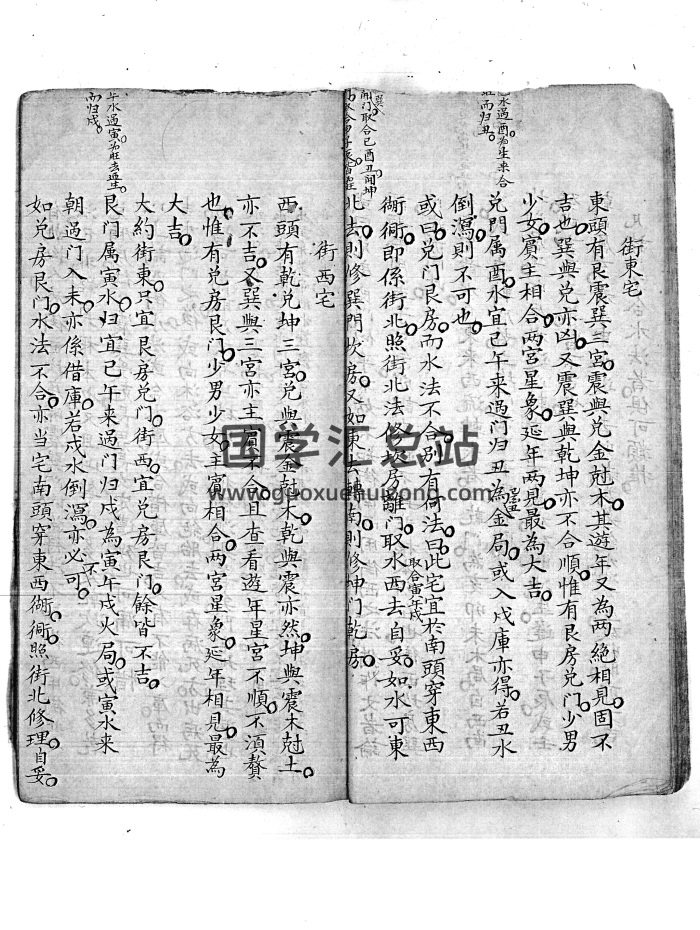 街東宅
東頭有艮震巽三宮震與兌金尅木其遊年又為兩絕相見固不
吉也巽與兌亦凶又震巽與乾坤亦不合順惟有艮房兌门少男
少女賓主相合两宮星象延年两見最為大吉
兌門属酉水宜巳午来過门归丑為金局或入戍庫亦得若丑水
倒瀉則不可也
或曰兌门艮房而水法不合别有何法曰此宅宜於南頭穿東西
衚衕即係街北照街北法修坎房離门取水西去自妥如水可東
取合寅午戍
北去則修巽門坎房又如東去轉南則修坤门乾房
水過酉為生来合
旺而归丑
開门取合巳酉丑開坤
街西宅
西頭有乾兌坤三宮兌與震金尅木乾與震亦然坤與震木尅土
亦不吉又巽與三宮亦主賓不合且查看遊年星宮不順不湏贅
也惟有兌房艮门少男少女主賓相合两宮星象延年相見最為
大吉
大約街東只宜艮房兌门街西宜兌房艮门餘皆不吉
艮门属寅水归宜巳午来過门归戍為寅午戍火局或寅水来
朝過门入未亦係借庫若戍水倒瀉亦必不可
如兌房艮门水法不合亦当宅南頭穿東西衚衕照街北修理自妥
午水過寅為旺去迎生
而归戍
国学汇总站
www.guoxuehuizong.com